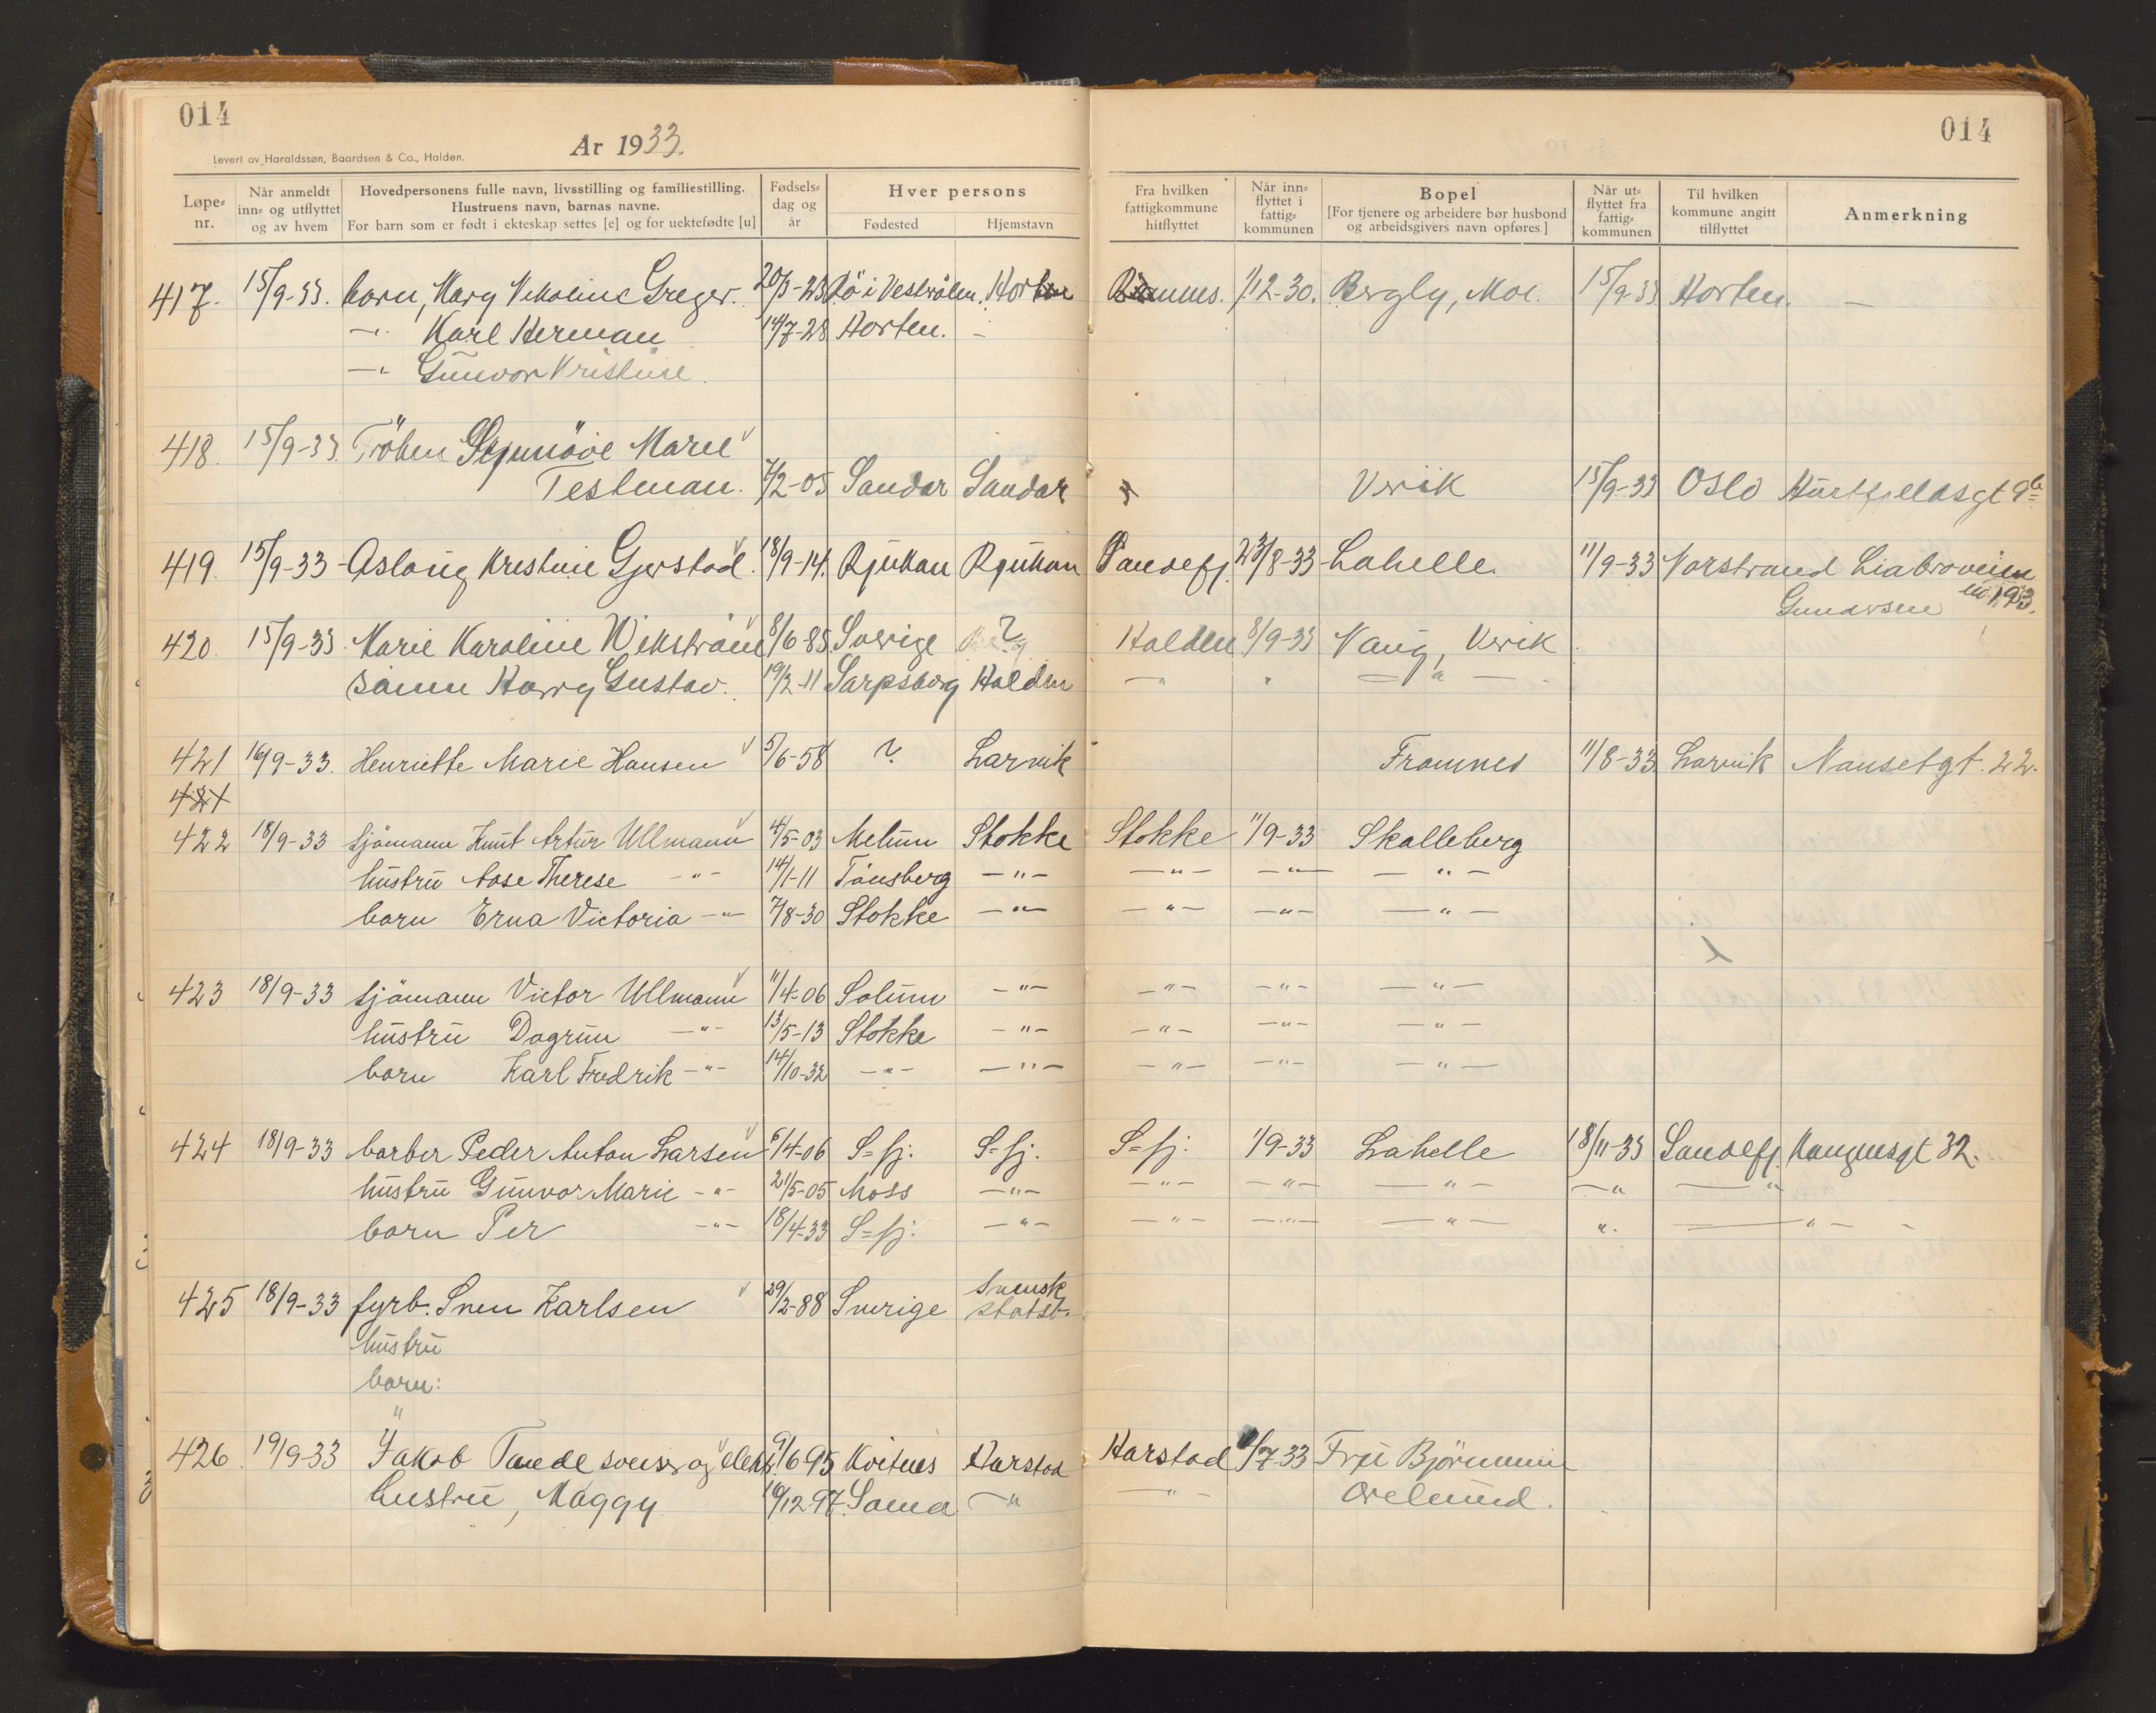 014
014
År 1933.
Levert av Haraldssøn, Baardsen & Co., Halden.
Løpe-nr.
Når anmeldt inn- og utflyttet og av hvem
Hovedpersonens fulle navn, livsstilling og familiestilling.
Hustruens navn, barnas navne.
For barn som er født i ekteskap settes [e] og for uektefødte [u]
Fødsels-dag og år
Hver persons
Fødested
Hjemstavn
Fra hvilken fattigkommune hitflyttet
Når inn-flyttet i fattig-kommunen
Bopel
[For tjenere og arbeidere bør husbond og arbeidsgivers navn opføres]
Når ut-flyttet fra fattig-kommunen
Til hvilken kommune angitt tilflyttet
Anmerkning
417. 15/9-33. barn, Mary Nikoline Greger. 20/3-23 Bö i Vesterålen. Horten 1/12-30. Bergly, Moe. 15/9-33 Horten. —
—"— Karl Herman 14/7-28 Horten. —
—"— Gunvor Kristine.
418. 15/9-33. Fröken Marie
Testman. 7/2-05 Sandar Sandar Verik 15/9-33 Oslo
419. 15/9-33 Aslaug Kristine Gjerstad. 18/9-14. Rjukan Rjukan Sandefj. 23/8-33 Lahelle. 11/9-33 Norstrand Liabroveien
Gunarsen no. 193.
420. 15/9-33. Marie Karoline Wikström 8/6-85 Sverige ? Halden 8/9-33 Haug, Verik
sönn Harry Gustav. 19/2-11 Sarpsborg Halden —"— " —"—
421 16/9-33. Henriette Marie Hansen 5/6-58 ? Larvik Framnes 11/8-33 Larvik Nansetgt. 22.
421
422 18/9-33 sjömann Knut Artur Ullmann 4/5-03 Melum Stokke Stokke 11/9-33 Skalleberg
hustru Aase Therese —"— 14/1-11 Tönsberg —"— —"— —"— —"—
barn Erna Victoria —"— 7/8-30 Stokke —"— —"— —"— —"—
423 18/9-33 sjömann Victor Ullmann 11/4-06 Solum —"— —"— —"— —"—
hustru Dagrun —"— 13/5-13 Stokke —"— —"— —"— —"—
barn Karl Fredrik —"— 14/10-32 —"— —"— —"— —"— —"—
424 18/9-33 barber Peder Anton Larsen 6/4-06 S=fj. S=fj. S=fj. 1/9-33 Lahelle 18/11-33 Sandefj. Kongensgt 32.
hustru Gunvor Marie —"— 21/5-05 Moss —"— —"— —"— —"— —"— —"—
barn Per —"— 18/4-33 S=fj. —"— —"— —"— —"— " —"—
425 18/9-33 fyrb. Sven Karlsen 29/2-88 Sverige Svensk statsb.
hustru
barn:
"
426. 19/9-33 Jakob Tande og 9/6 95 Kvitnes Harstad Harstad 1/7-33 Fru Björnmin
hustru, Maggy 10/12 97. Sama —"— —"— Orelund.